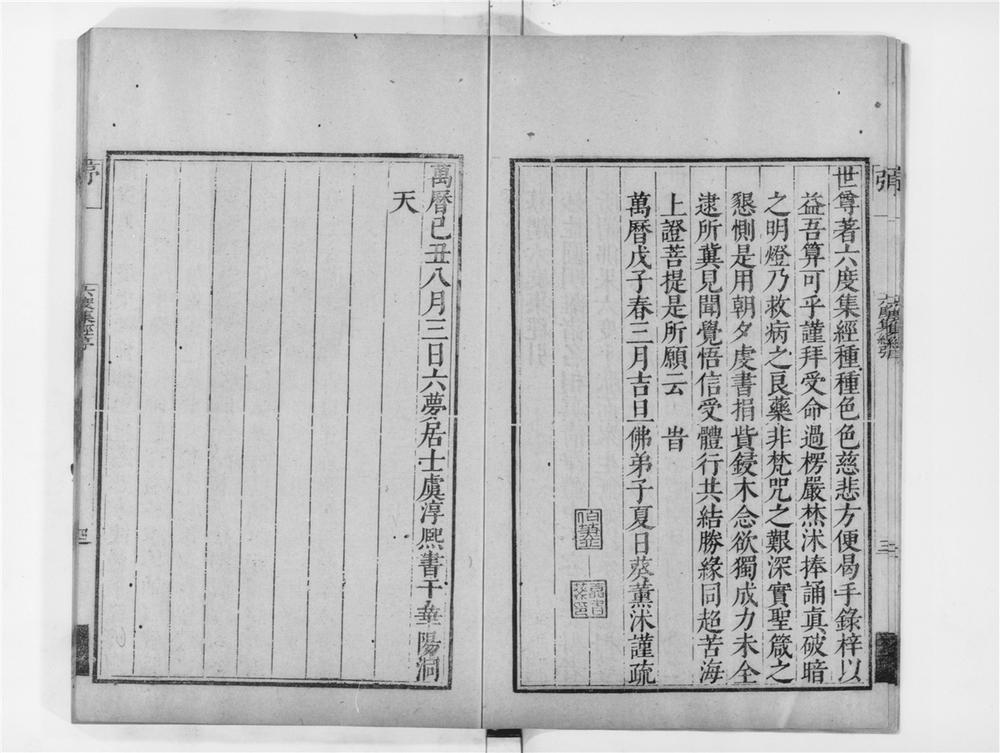 世尊著六度集經種種色色慈悲方便曷手錄梓以
益吾算可乎謹拜受命過楞嚴焚沐捧誦真破暗
之明燈乃救病之良藥非梵咒之艱深實聖箴之
懇惻是用朝夕虔書捐貲鋟木念欲獨成力未全
逮所冀見聞覺悟信受體行共結勝緣同超苦海
上證菩提是所願云 旹
萬曆戊子春三月吉旦佛弟子夏日葵薰沐謹疏
三
萬曆己丑八月三日六夢居士虞淳熈書于華陽洞
天